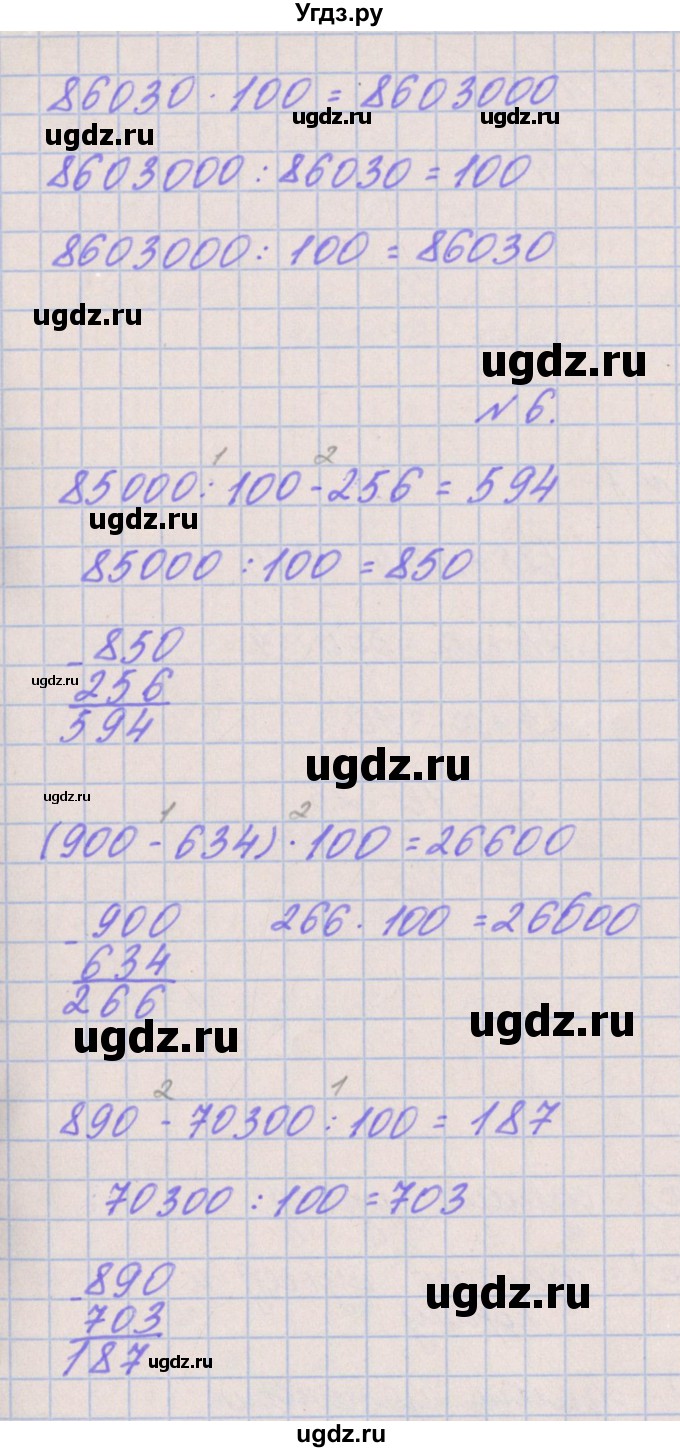 Угдз.ру
86030 · 100 = 8603000
ugdz.ru ugdz.ru ugdz.ru
8603000 : 86030 = 100
8603000 : 100 = 86030
ugdz.ru
ugdz.ru
№ 6.
1 2
85000 : 100 - 256 = 594
ugdz.ru
85000 : 100 = 850
- 850
ugdz.ru
256
594
ugdz.ru
ugdz.ru
1 2
(900 - 634) · 100 = 26600
- 900 266 · 100 = 26600
634
266
ugdz.ru ugdz.ru
2 1
890 - 70300 : 100 = 187
70300 : 100 = 703
- 890
ugdz.ru
703
187
ugdz.ru
ugdz.ru